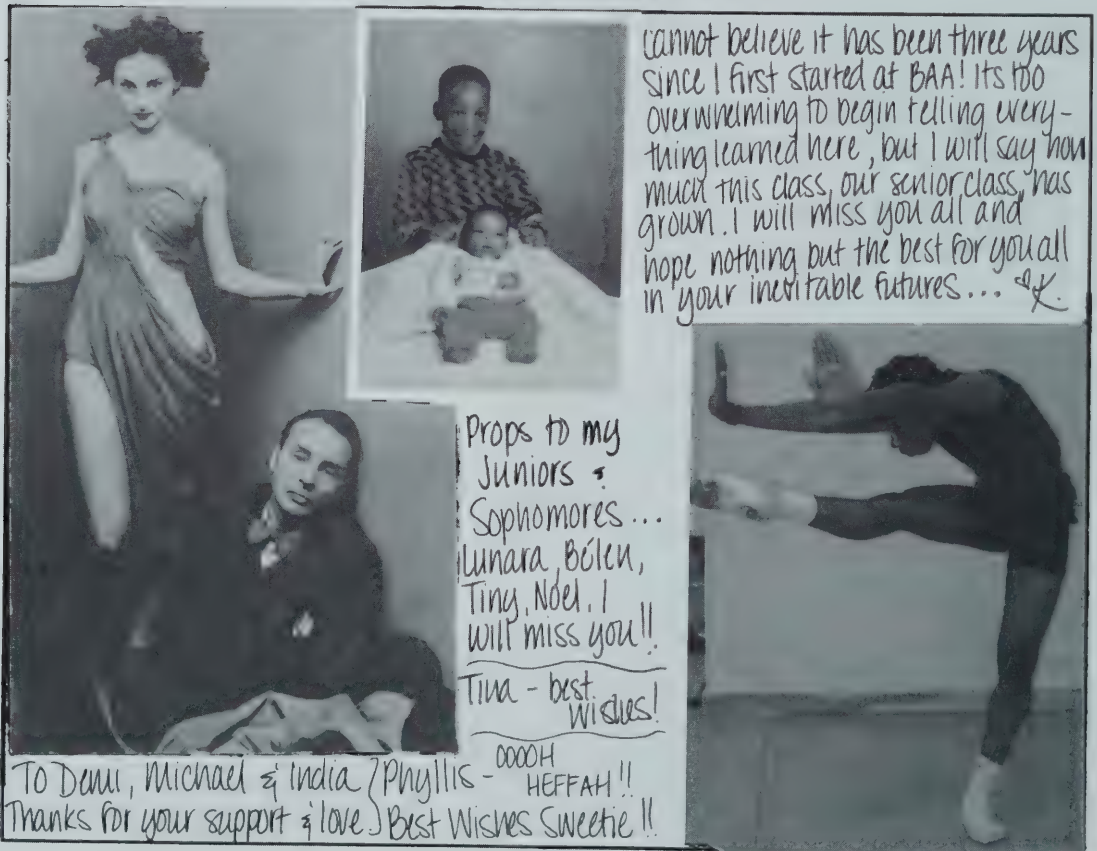 cannot believe it has been three years
since I first started at BAA! Its too
overwhelming to begin telling every-
thing learned here, but I will say how
much this class, our senior class, has
grown. I will miss you all and
hope nothing but the best for you all
in your inevitable futures... ♡K.
Props to my
Juniors &
Sophomores...
Lunara, Bélen,
Tiny, Noel. I
will miss you!!
Tina - best
wishes!
To Demi, Michael & India
Thanks for your support & love
Phyllis - OOOOH
HEFFAH!!
Best Wishes Sweetie!!